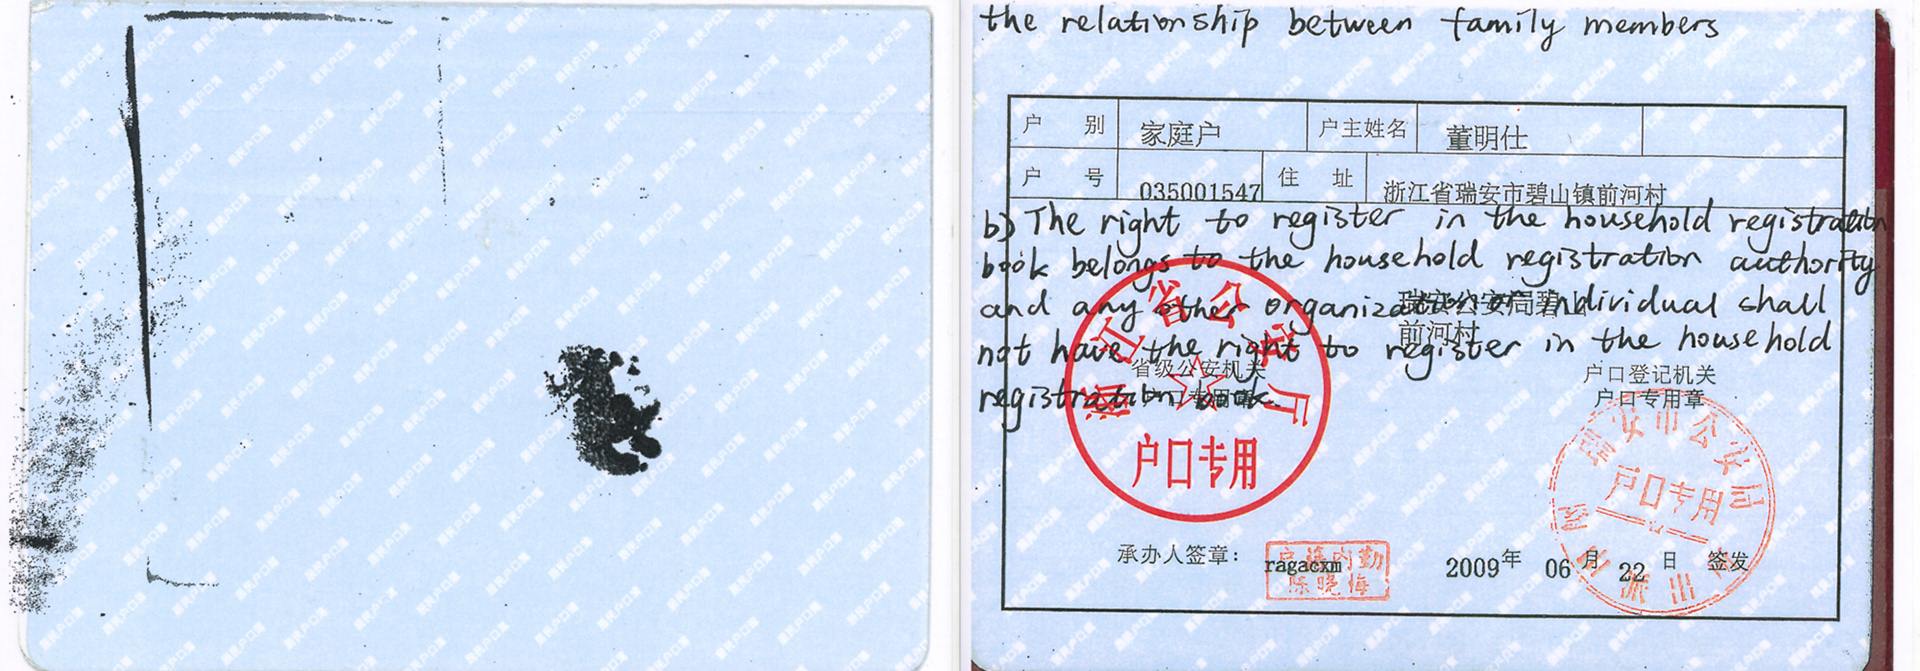 the relationship between family members
户 别 家庭户 户主姓名 董明仕
户 号 035001547 住 址 浙江省瑞安市碧山镇前河村
b) The right to register in the household registration
book belongs to the household registration authority
and any other organization or individual shall
not have the right to register in the household
registration book.
瑞安公安局碧山
前河村
浙江省公安厅
省级公安机关
户口专用章
户口专用
户口登记机关
户口专用章
瑞安市公安局
户口专用
派出所
承办人签章:
ragacxm
户籍内勤
陈晓梅
2009年 06月 22日 签发